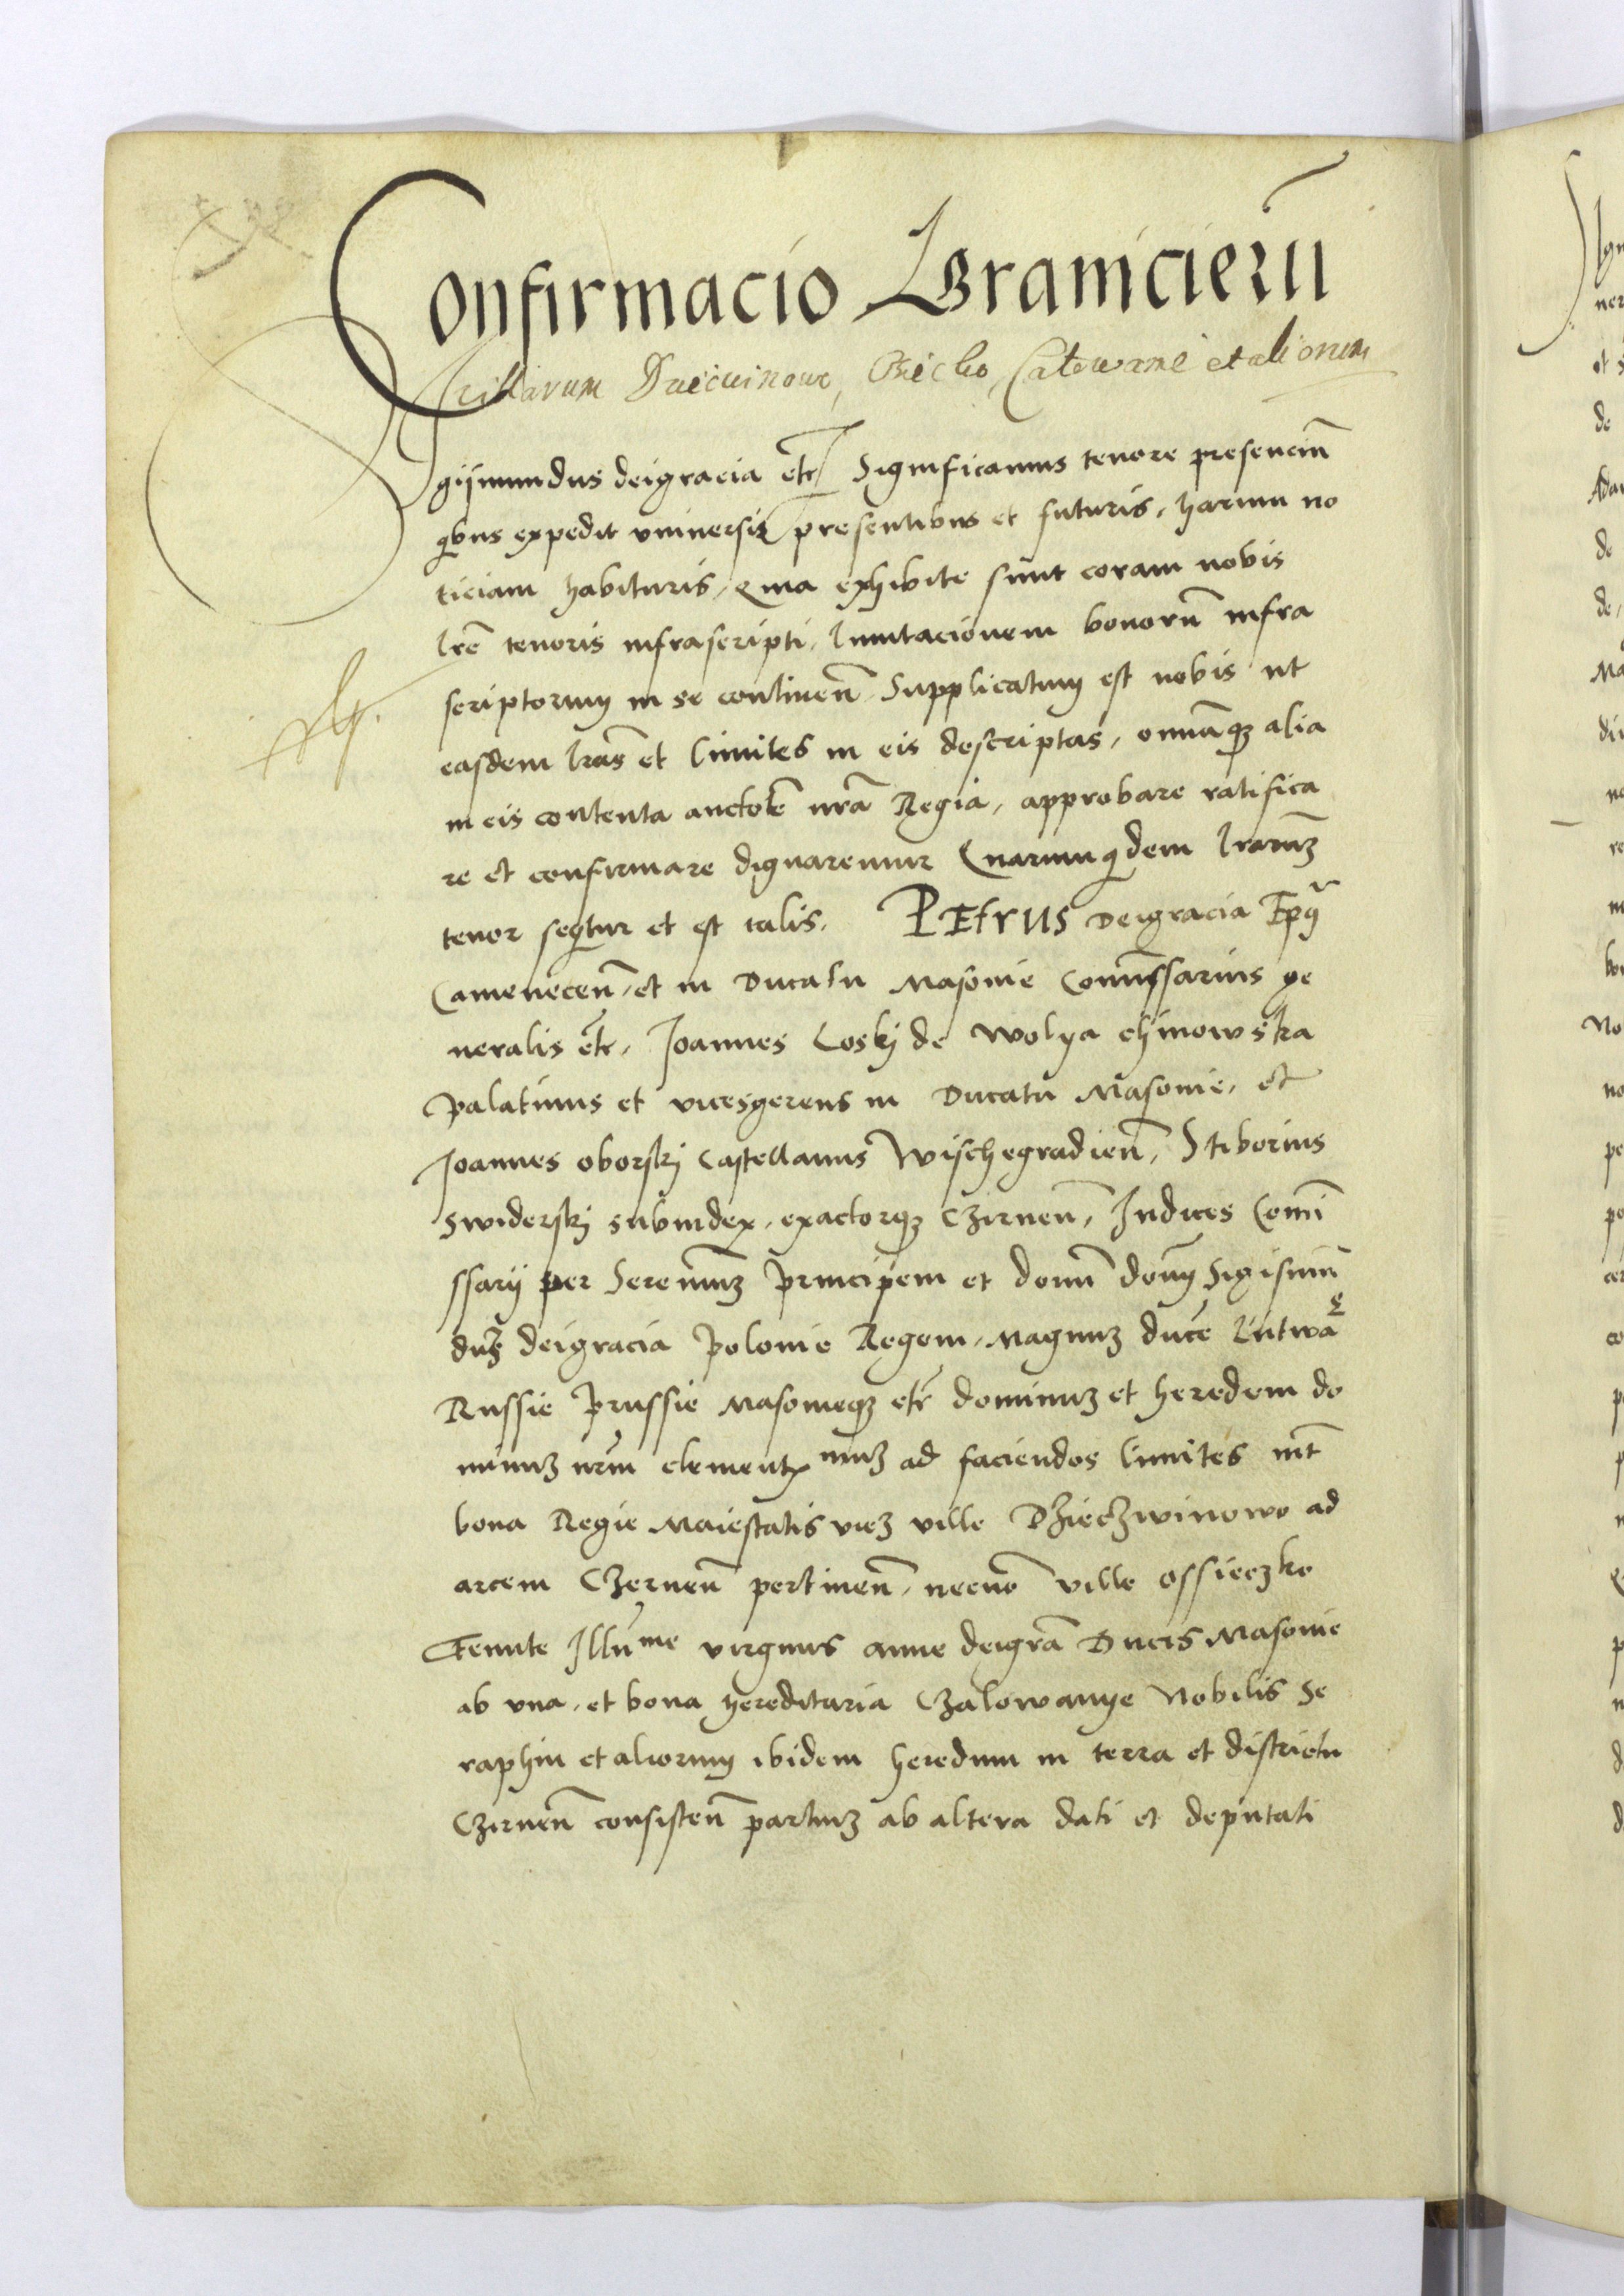 Confirmacio Granicierũ
Villarum Dziecinowo, Osiecko, Calowanie et aliorum
Sigijmundus deigracia etc̃ Significamus tenore presenciũ
qbus expedit vniuersis presentibus et futuris, harum no
ticiam habituris, Quia exhibite sunt coram nobis
lrẽ tenoris infrascripti, limitacionem bonorũ infra
scriptorum in se continen̄ Supplicatum est nobis ut
easdem lrãs et limites in eis descriptas, omniaqꝫ alia
in eis contenta auctotẽ nrã Regia, approbare ratifica
re et confirmare dignaremur Quarum qdem lrarumꝫ
tenor seqtur et est talis. PEtrus Deigracia Epũs
Camenecen̄, et in Ducatu Masouie Com̃issarius ge
neralis etc̃, Joannes Coskj de Wolya chijnowska
palatinus et vicesgerens in Ducatu Masouie, et
Joannes oborskj Castellanus Wischegradien̄, Stiborius
Swiderskj subiudex, exactorqꝫ Czirnen̄, Judices Com̃i
ssarij per Serenimũꝫ principem et domũ domnũ Sigismũ
dũꝫ deigracia polonie Regem, Magnuꝫ ducẽ Litwãe
Russie prussie Masouieqꝫ etc̃ dominuꝫ et heredem do
minuꝫ nrm̃ clementx̃ muꝫ ad faciendos limites int̃
bona Regie Maiestatis vicꝫ ville Dzieczwinowo ad
arcem Czernen̄ pertinen̄, necnõ ville ossieczko
Tenute Illũ me virginis anne deigrã Ducis Masouie
ab vna, et bona hereditaria Czalowanye Nobilis Se
raphin et aliorum ibidem heredum in terra et districtu
Czirnen̄ consisten̄ partiuꝫ ab altera dati et deputati